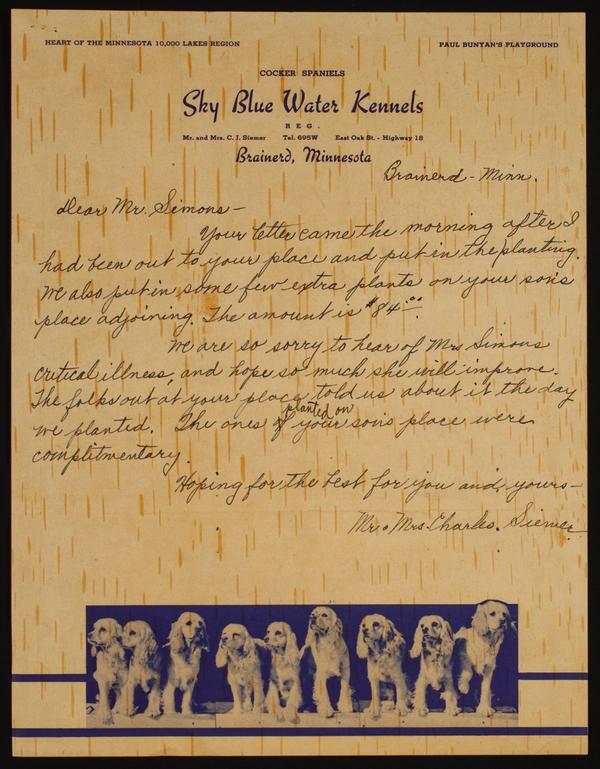 HEART OF THE MINNESOTA 10,000 LAKES REGION
PAUL BUNYAN'S PLAYGROUND
COCKER SPANIELS
Sky Blue Water Kennels
REG.
Mr. and Mrs. C. J. Siemer Tel. 695W East Oak St. - Highway 18
Brainerd, Minnesota
Brainerd - Minn.
Dear Mr. Simons -
Your letter came the morning after I
had been out to your place and put in the planting.
We also put in some few extra plants on your son's
place adjoining. The amount is $84.00.
We are so sorry to hear of Mrs Simons
critical illness, and hope so much she will improve.
The folks out at your place told us about it the day
we planted. The ones planted on your son's place were
complitmentary.
Hoping for the best for you and yours -
Mr. & Mrs. Charles. Siemer